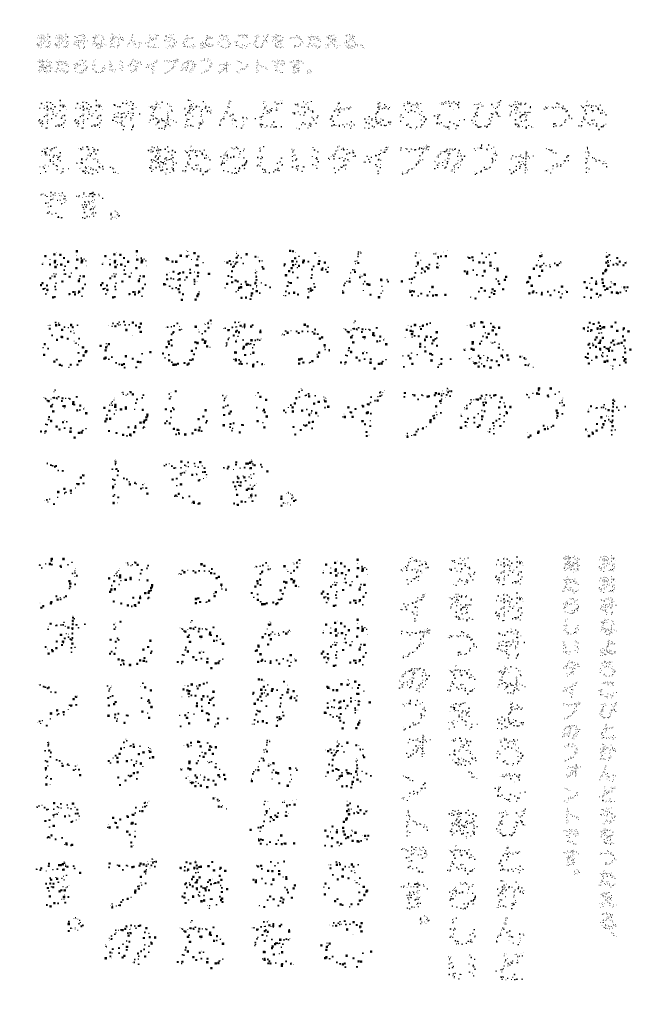 おおきなかんどうとよろこびをつたえる、
新たらしいタイプのフォントです。
おおきなかんどうとよろこびをつた
える、新たらしいタイプのフォント
です。
おおきなかんどうとよ
ろこびをつたえる、新
たらしいタイプのフォ
ントです。
おおきなよろこびとかんどうをつたえる、
新たらしいタイプのフォントです。
おおきなよろこびとかんど
うをつたえる、新たらしい
タイプのフォントです。
おおきなよろこ
びとかんどうを
つたえる、新た
らしいタイプの
フォントです。